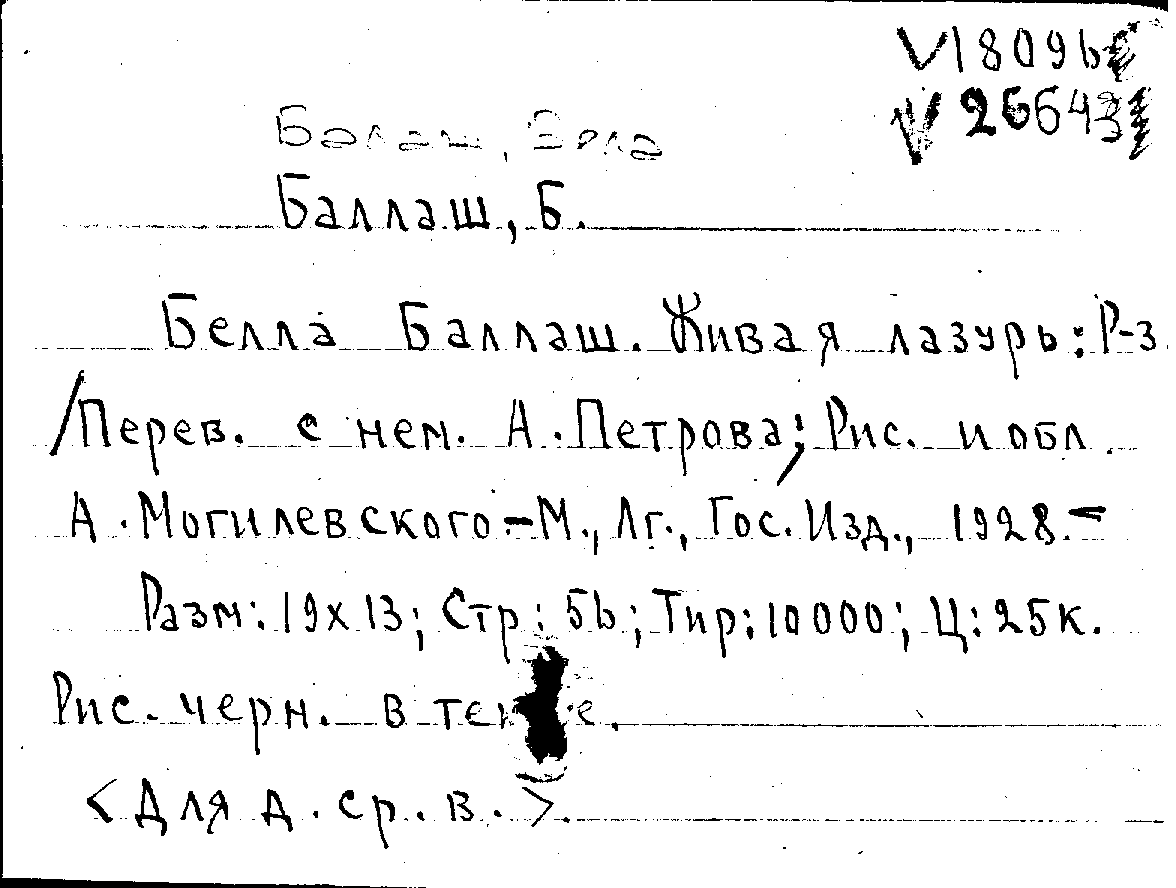 V18096
V26643
Балаш, Бела
Баллаш, Б.
Белла Баллаш. Живая лазурь: Р-з.
/Перев. с нем. А. Петрова; Рис. и обл.
А. Могилевского.-М., Лг., Гос. Изд., 1928.-
Разм: 19х13; Стр: 56; Тир: 10000; Ц: 25к.
Рис. черн. в тексте.
<Для д. ср. в.>.